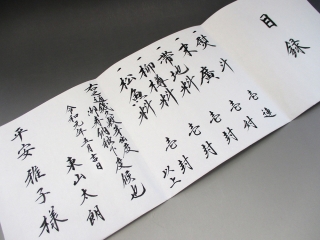 目録
一熨斗 壱連
一末廣 壱封
一帯地料 壱封
一柳樽料 壱封
一松魚料 壱封
以上
右之通幾久敷芽出度
御受納被下度候也
令和元年五月吉日
東山太朗
平安雅子様